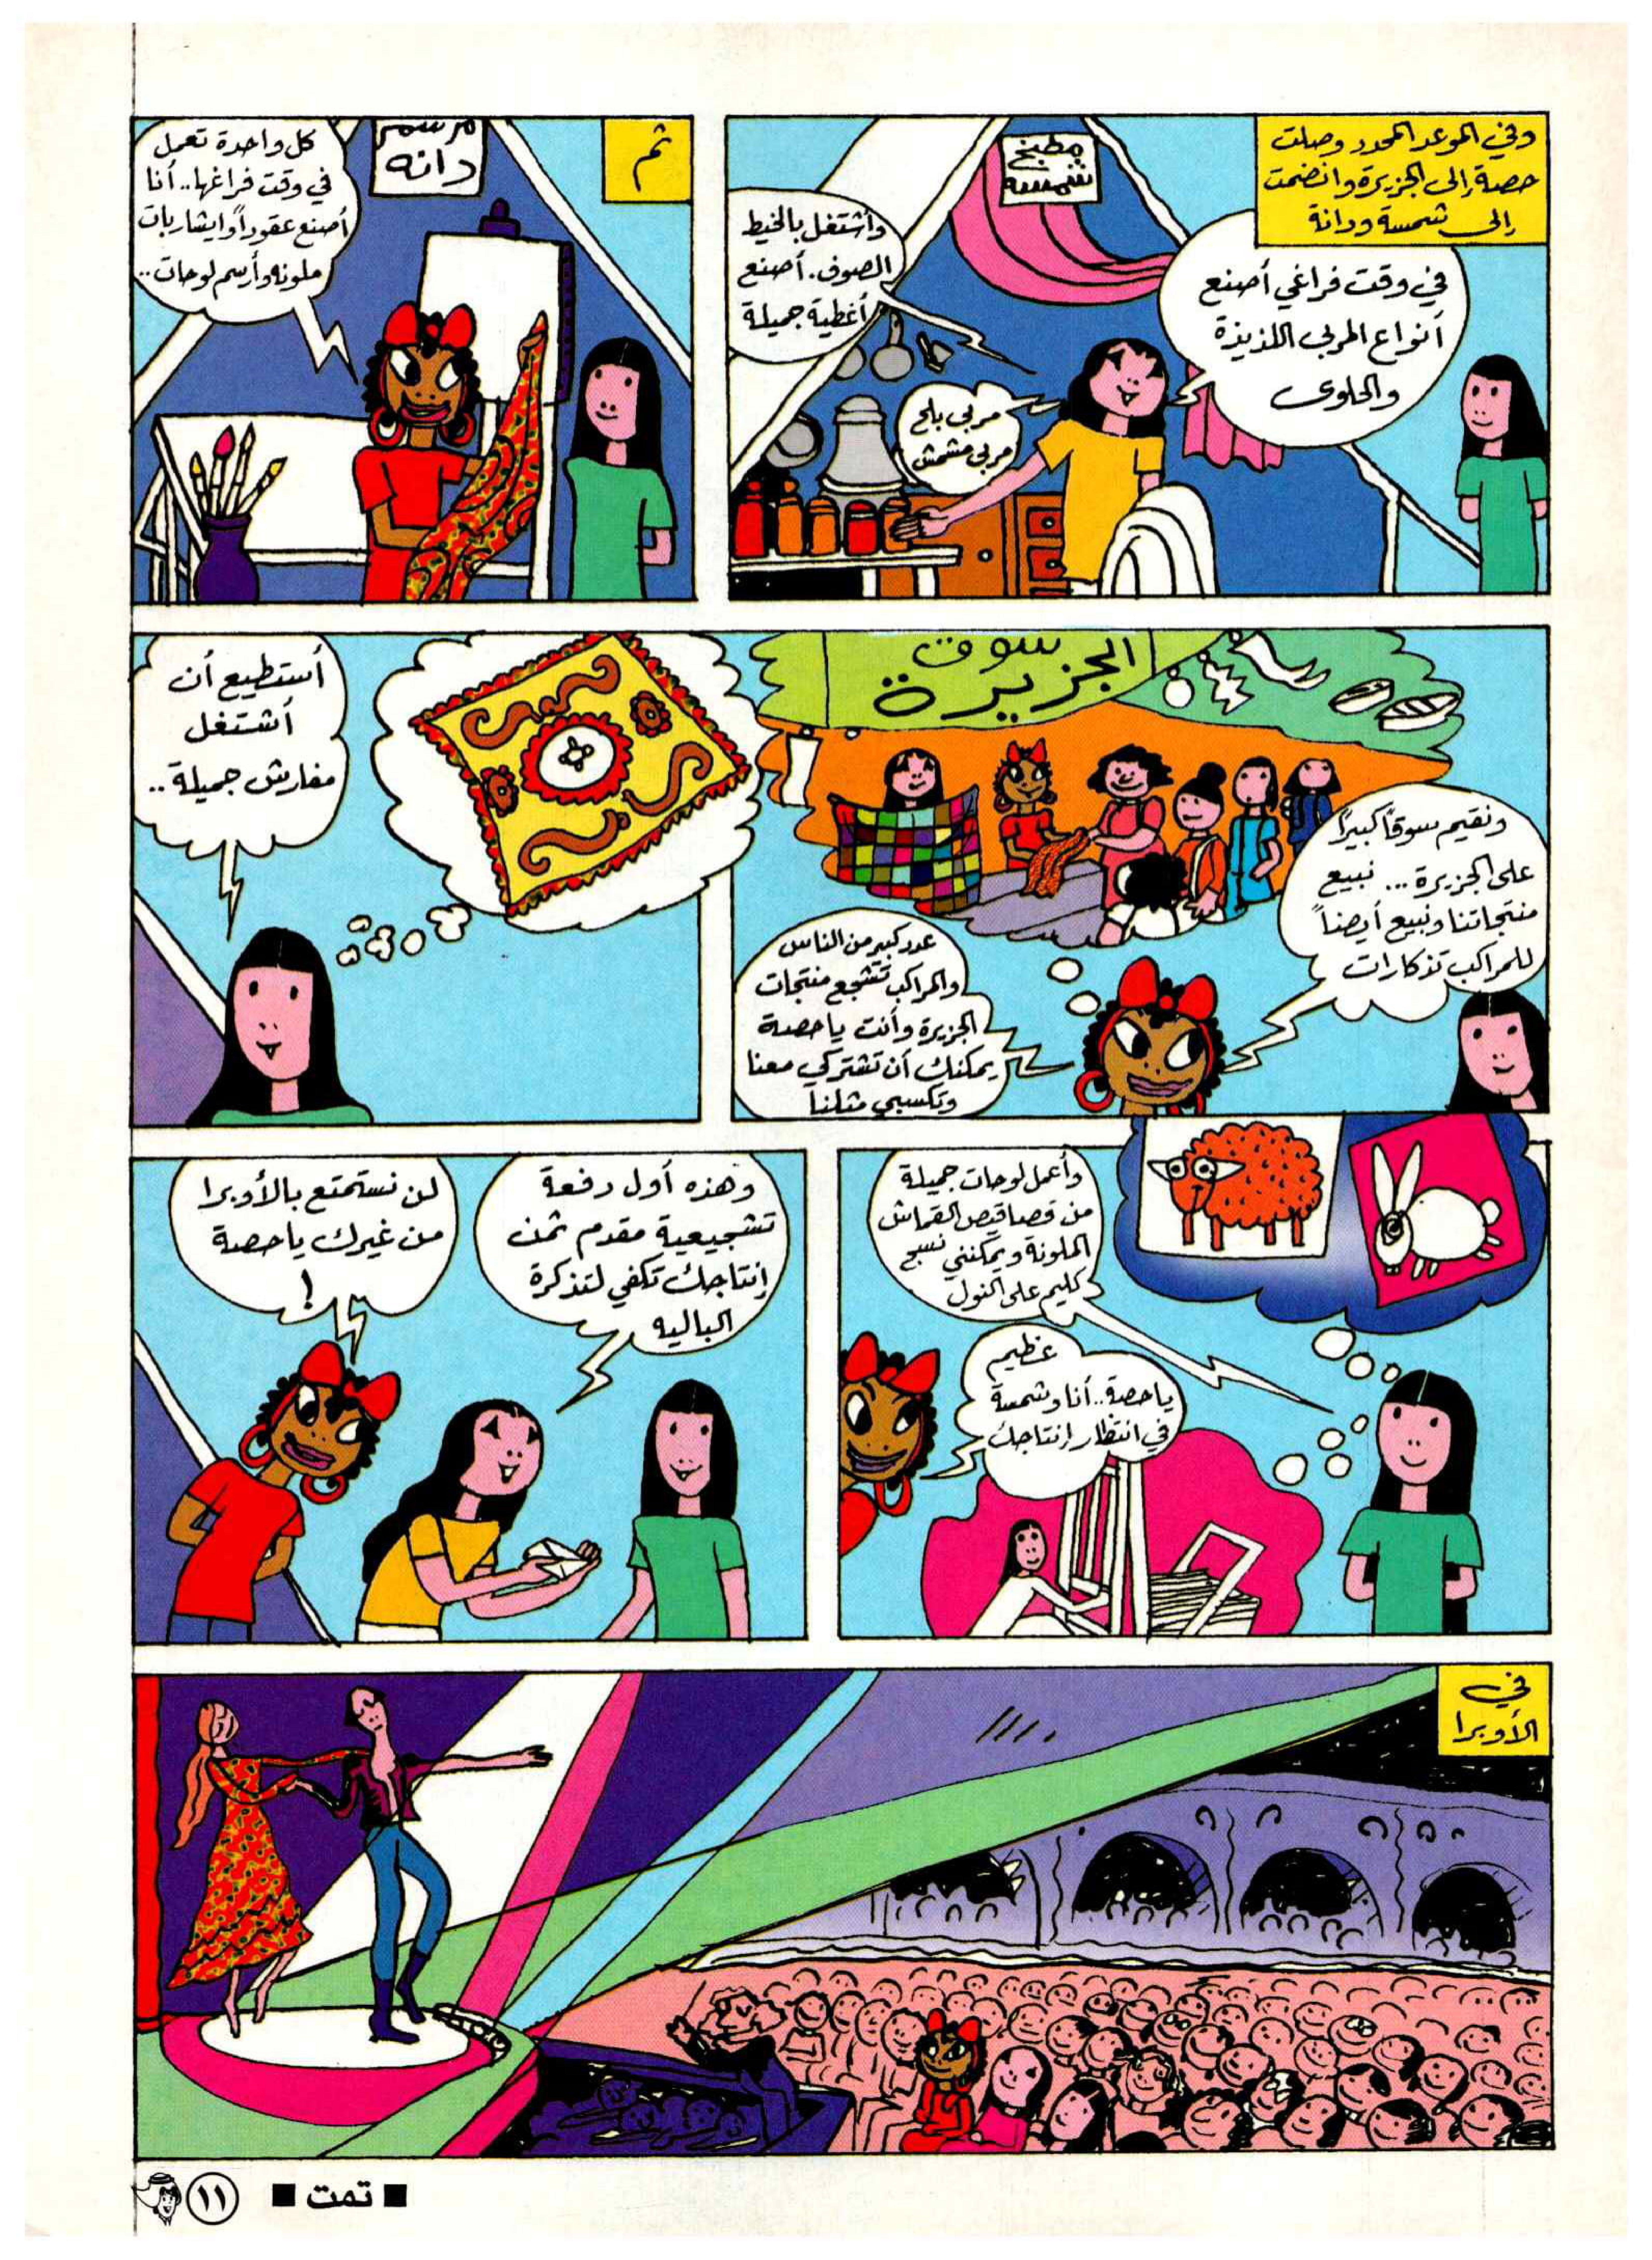 وفي الموعد المحدد وصلت
حصة إلى الجزيرة وانضمت
إلى شمسة ودانة
مطبخ
شمسه
في وقت فراغي أصنع
أنواع المربى اللذيذة
والحلوى
وأشتغل بالخيط
الصوف. أصنع
أغطية جميلة
مربى بلح
مربى مشمش
ثم
مرسم
دانه
كل واحدة تعمل
في وقت فراغها.. أنا
أصنع عقوداً وايشاربات
ملونه وأرسم لوحات..
سوق
الجزيرة
ونقيم سوقاً كبيراً
على الجزيرة... نبيع
منتجاتنا ونبيع أيضاً
للمراكب تذكارات
عدد كبير من الناس
والمراكب تشجع منتجات
الجزيرة وأنت ياحصة
يمكنك أن تشتركي معنا
وتكسبي مثلنا
أستطيع أن
أشتغل
مفارش جميلة..
وأعمل لوحات جميلة
من قصاقيص القماش
الملونة ويمكنني نسج
كليم على النول
عظيم
ياحصة.. أنا وشمسة
في انتظار إنتاجك
وهذه أول دفعة
تشجيعية مقدم ثمن
إنتاجك تكفي لتذكرة
الباليه
لن نستمتع بالأوبرا
من غيرك ياحصة
!
في
الأوبرا
■ تمت ■
١١